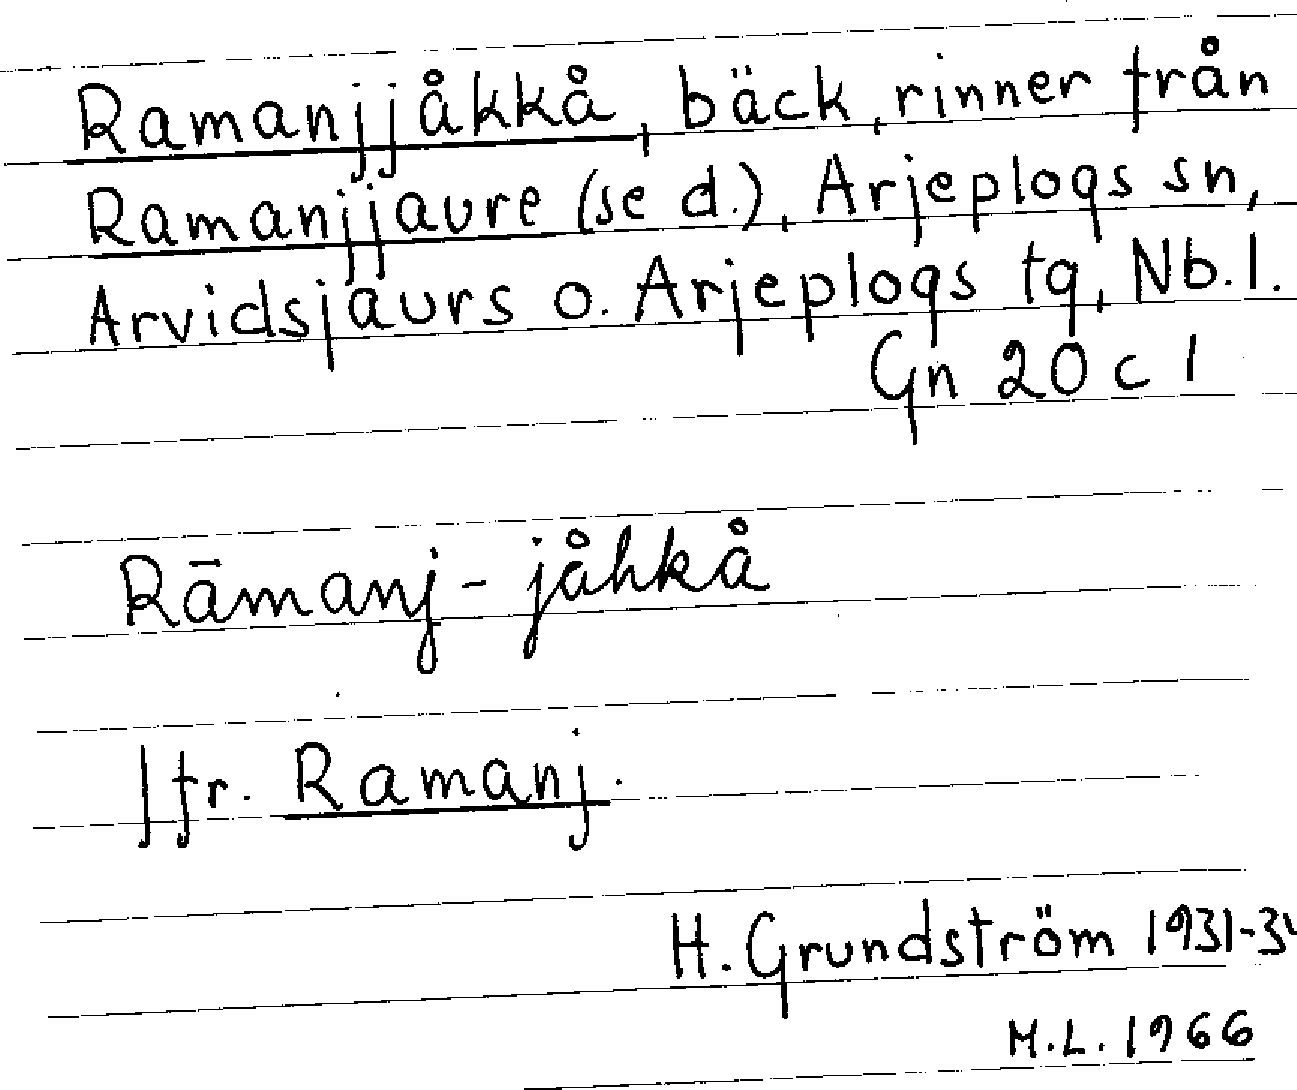 Ramanjjåkkå, bäck, rinner från
Ramanjjaure (se d.), Arjeplogs sn,
Arvidsjaurs o. Arjeplogs tg, Nb. l.
Gn 20 c 1
Rāmanj - jåhkå
Jfr. Ramanj.
H. Grundström
M.L. 1966